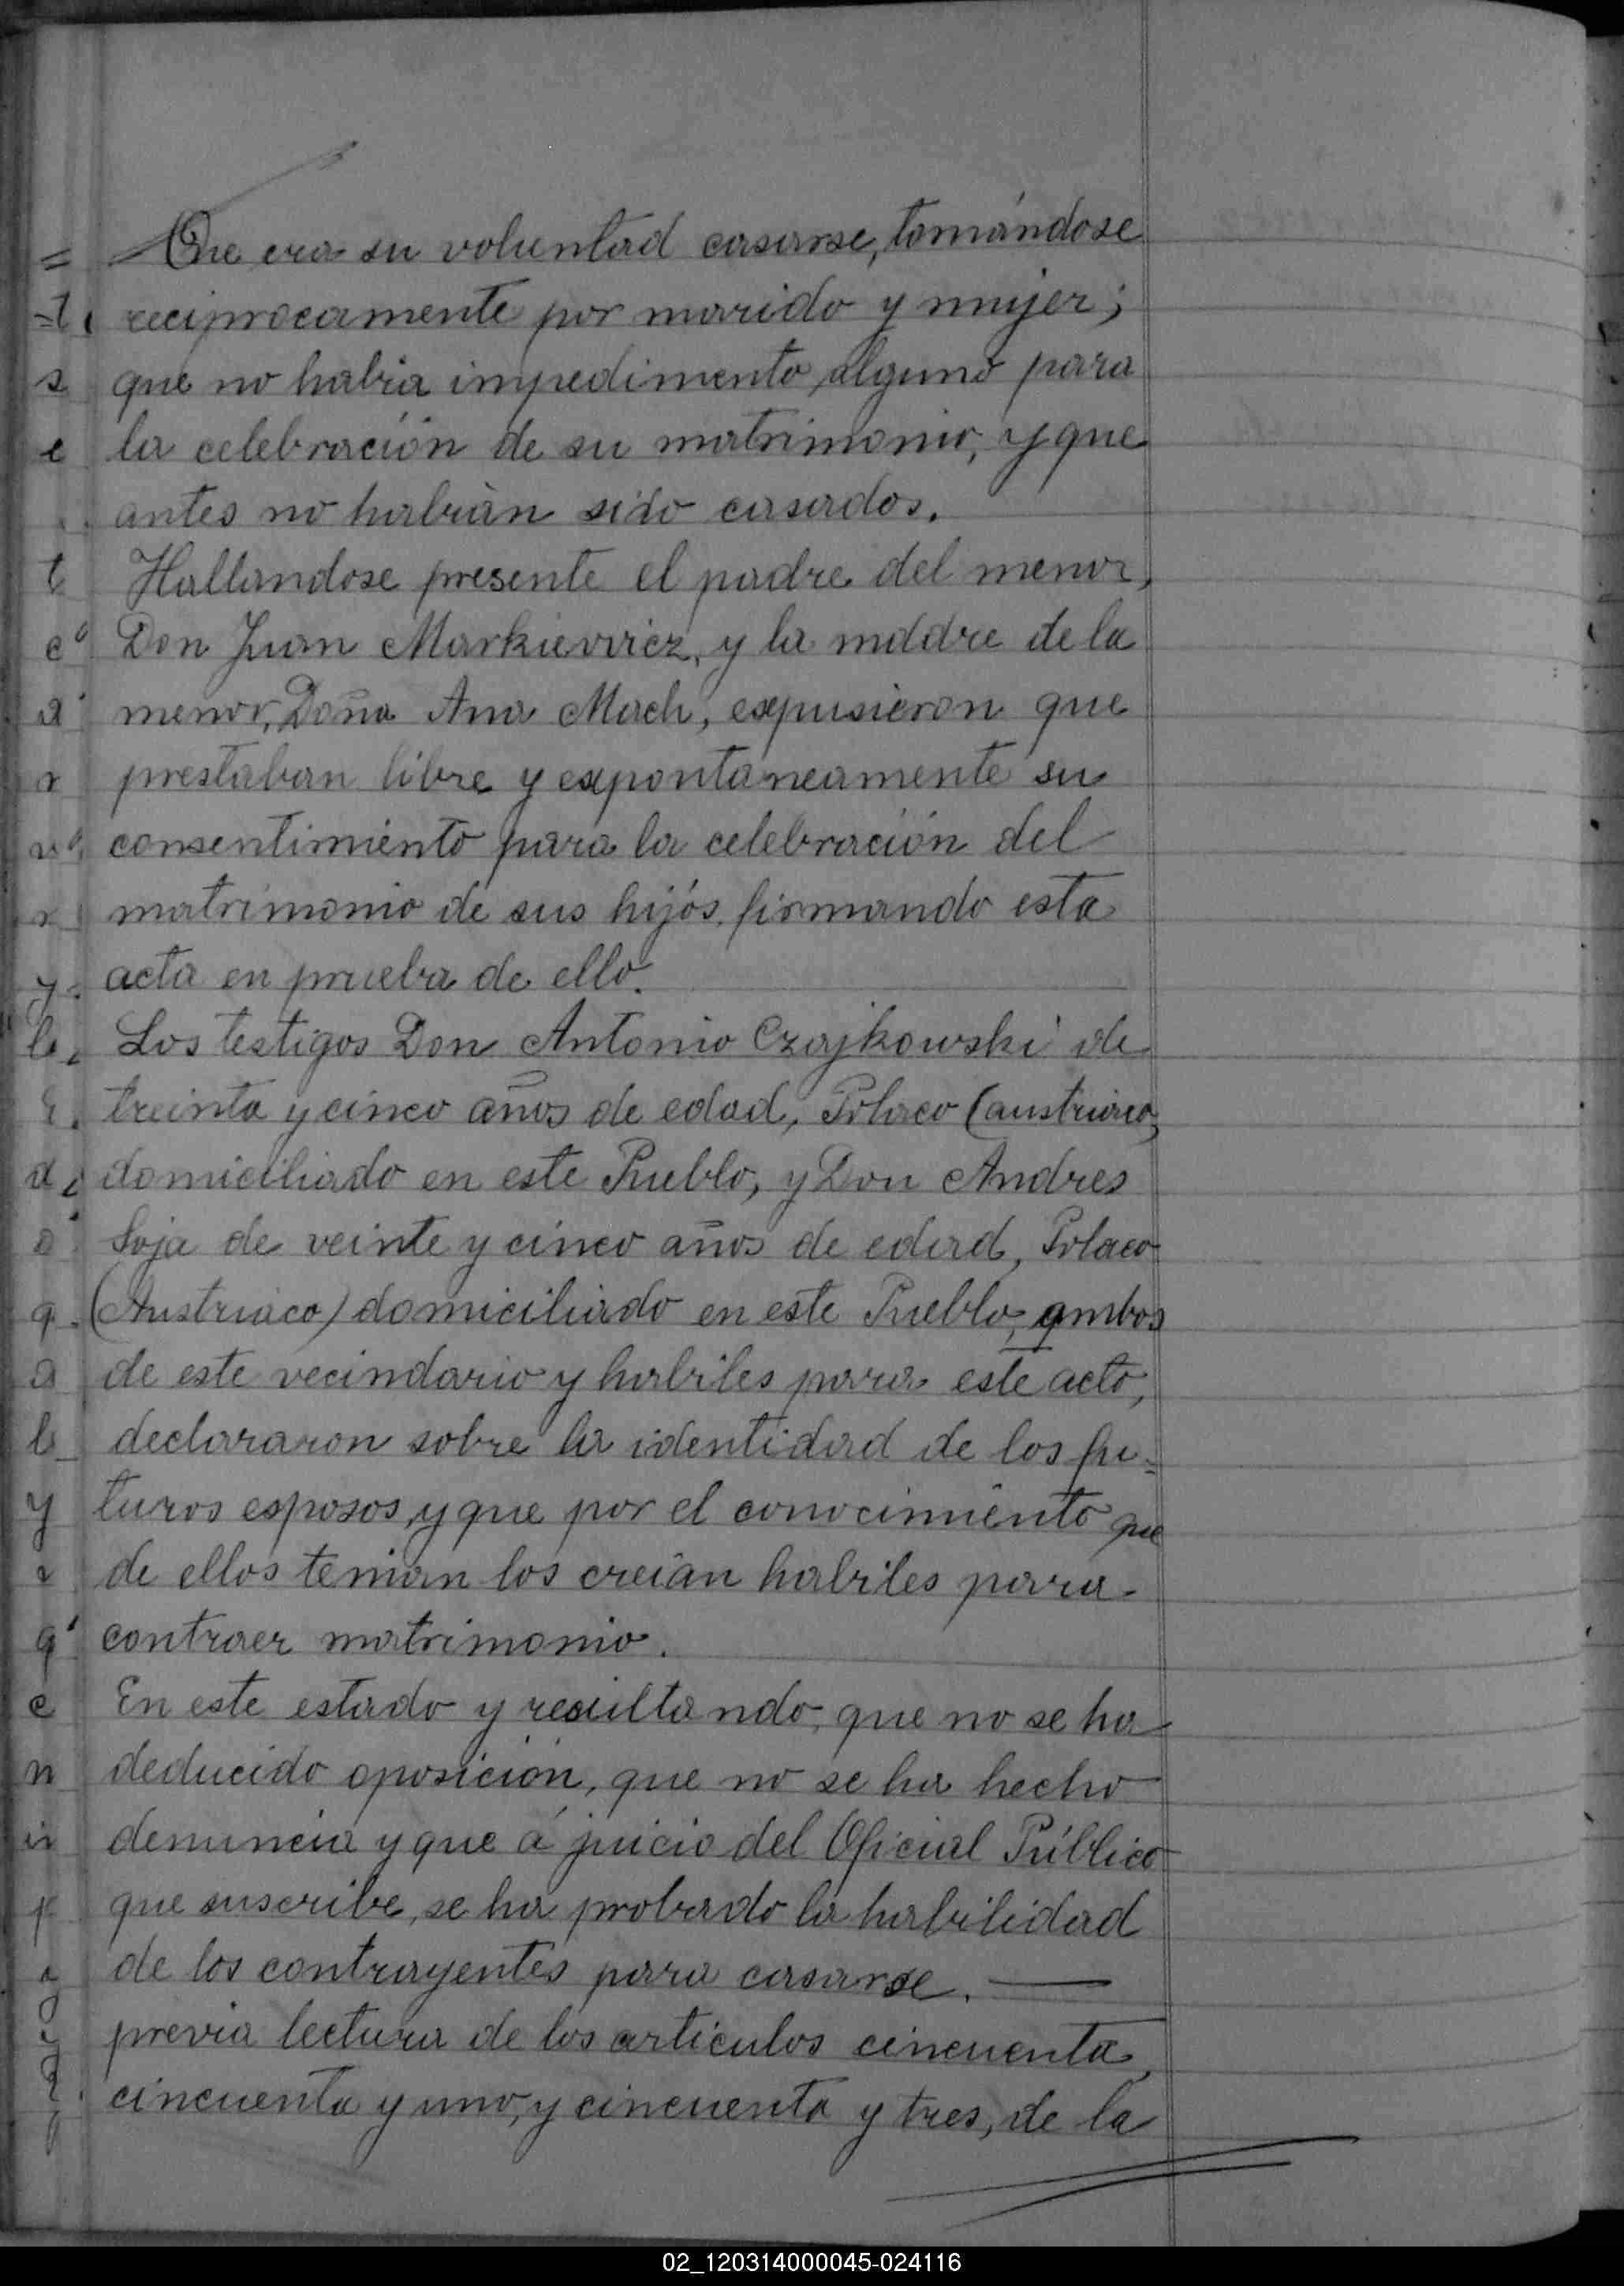 Que era su voluntad casarse, tomándose
reciprocamente por marido y mujer;
que no habia impedimento alguno para
la celebración de su matrimonio, y que
antes no habian sido casados.
Hallandose presente el padre del menor,
Don Juan Markiewicz, y la madre de la
menor, Doña Ana Mach, expusieron que
prestaban libre y expontaneamente su
consentimiento para la celebración del
matrimonio de sus hijós, firmando esta
acta en prueba de ello.
Los testigos Don Antonio Czajkowski de
treinta y cinco años de edad, Polaco (austriaco,
domiciliado en este Pueblo, y Don Andres
Soja de veinte y cinco años de edad, Polaco
(Austriaco) domiciliado en este Pueblo, ambos
de este vecindario y habiles para este acto,
declararon sobre la identidad de los fu=
turos esposos, y que por el conocimiento que
de ellos tenian los creían habiles para
contraer matrimonio.
En este estado y resultando, que no se ha
deducido oposición, que no se ha hecho
denuncia y que á juicio del Oficial Público
que suscribe, se ha probado la habilidad
de los contrayentes para casarse.
previa lectura de los articulos cincuenta,
cincuenta y uno, y cincuenta y tres, de la
02_120314000045-024116